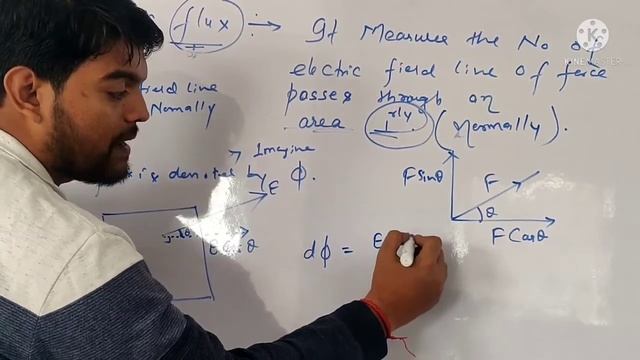 flux :→ It Measures the No of
electric field line of force
field line
passes through an
Normally
area ⊥rly (Normally).
Imagine
is denoted by ϕ.
E
E Cosθ
F Sinθ
F
θ
F Cosθ
dϕ = E
KINEMASTER